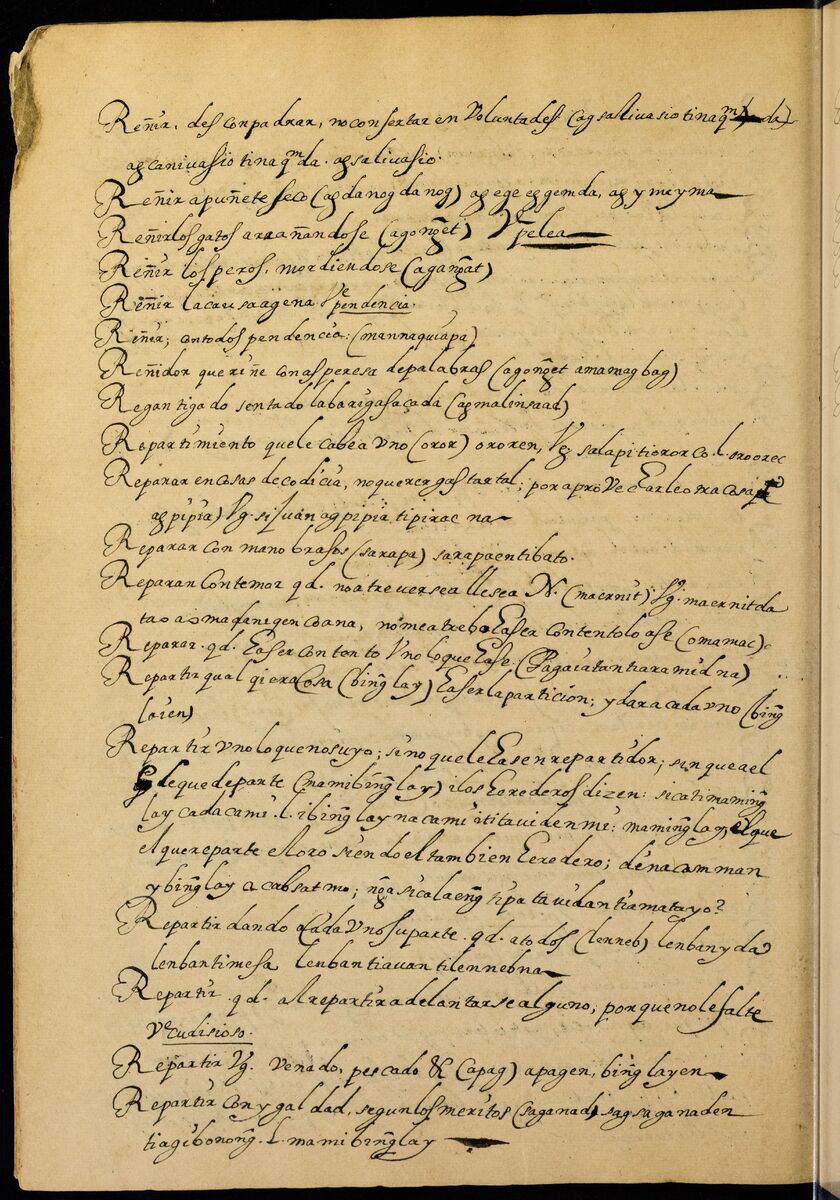 Reñir, desconpadrar, no consertar en Voluntades (agsalivasio tinaq^m da)
agcanivasio tinaq^m da. agsalivasio.
Reñir apuñete seco (agdanogdanog) agegeggemda, agymeyma
Reñir los gatos arañandose (agonget) V^e pelea
Reñir los peros, mordiendose (agangat)
Reñir la causa agena V^e pendencia.
Reñir; con todos pendencia: (mannaquiapa)
Reñidor que riñe con asperesa de palabras (agonget amamagbag)
Regantigado sentado la bariga sacada (agmalinsaad)
Repartimiento que le cabe a Vno (oror) ororen, Vg salapi tiororco. l. ororec
Reparar en cosas de codicia, no querer gastar tal; por aproVecharle otra cosa
agpipia) Vg. si Juan agpipia tipirac na
Reparar con mano brasos (sarapa) sarapaentibato.
Reparan Contemor qd. no atreverse a llesea N. (maernit) Vg. maernitda
no me atrebo haser contento lo ase (omamac)
Reparar. qd. haser contento Vno lo que hase. (Pagaiatantiaramidna)
Repartir qualqiera Cosa (binglay) haser la particion; y dar a cada vno (bing
laien)
Repartir vno lo que no suyo; sino que le hasen repartidor; sin que a el
le que de parte (mamibinglay) i los herederos dizen: sicati maming
lay cadacami. l. ibinglay nacami itita videnmi: maminglay, el que
el que reparte el oro siendo el tambien heredero; denacamman
ybinglay a cabsatmo; nga sicalaeng tipatavidantiamatayo?
Repartir dando a Cada Vno su parte. qd. a todos (lenneb) lenbanyda
lenbantimesa lenbantiavantilennebna
Repartir. qd. al repartir adelantarse alguno; por que no le falte
V^e cudisioso.
Repartir Vg. venado, pescado &c (apag) apagen, binglayen
Repartir con ygaldad, segun los meritos (saganad) sagsaganaden
tiagibonong. l. mamibinglay